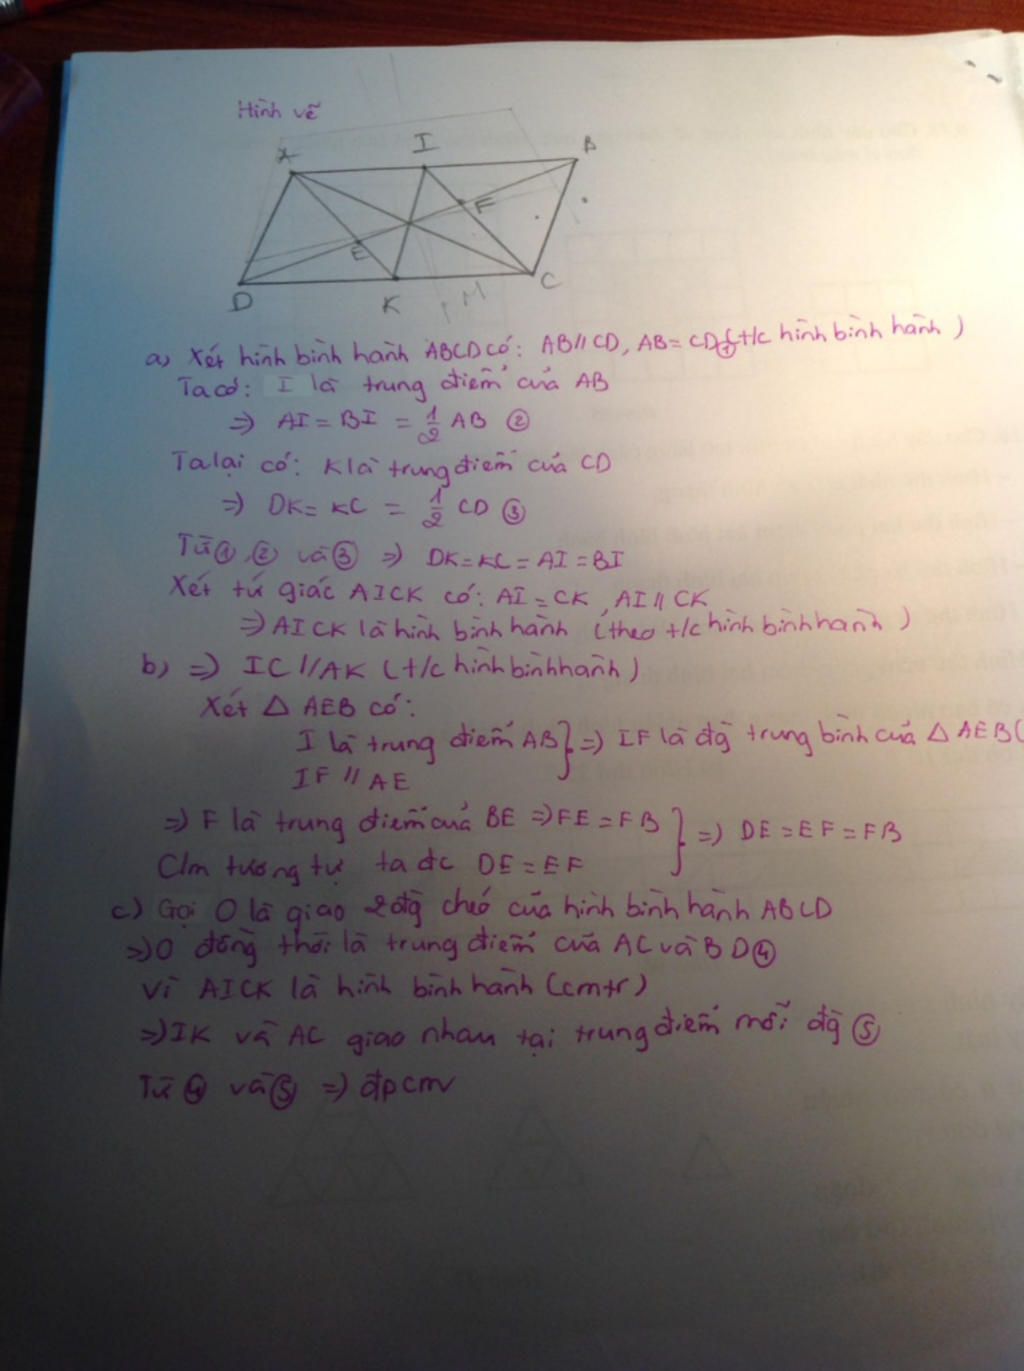 Hình vẽ
A I B
F
E
D K M C
a) Xét hình bình hành ABCD có: AB // CD, AB = CD ① (t/c hình bình hành)
Ta có: I là trung điểm của AB
=> AI = BI = 1/2 AB ②
Ta lại có: K là trung điểm của CD
=> DK = KC = 1/2 CD ③
Từ ①, ② và ③ => DK = KC = AI = BI
Xét tứ giác AICK có: AI = CK, AI // CK
=> AICK là hình bình hành (theo t/c hình bình hành)
b) => IC // AK (t/c hình bình hành)
Xét △ AEB có:
I là trung điểm AB } => IF là đg trung bình của △ AEB (
IF // AE
=> F là trung điểm của BE => FE = FB } => DE = EF = FB
C/m tương tự ta đc DE = EF
c) Gọi O là giao 2 đg chéo của hình bình hành ABCD
=> O đồng thời là trung điểm của AC và BD ④
Vì AICK là hình bình hành (cmtr)
=> IK và AC giao nhau tại trung điểm mỗi đg ⑤
Từ ④ và ⑤ => đpcm